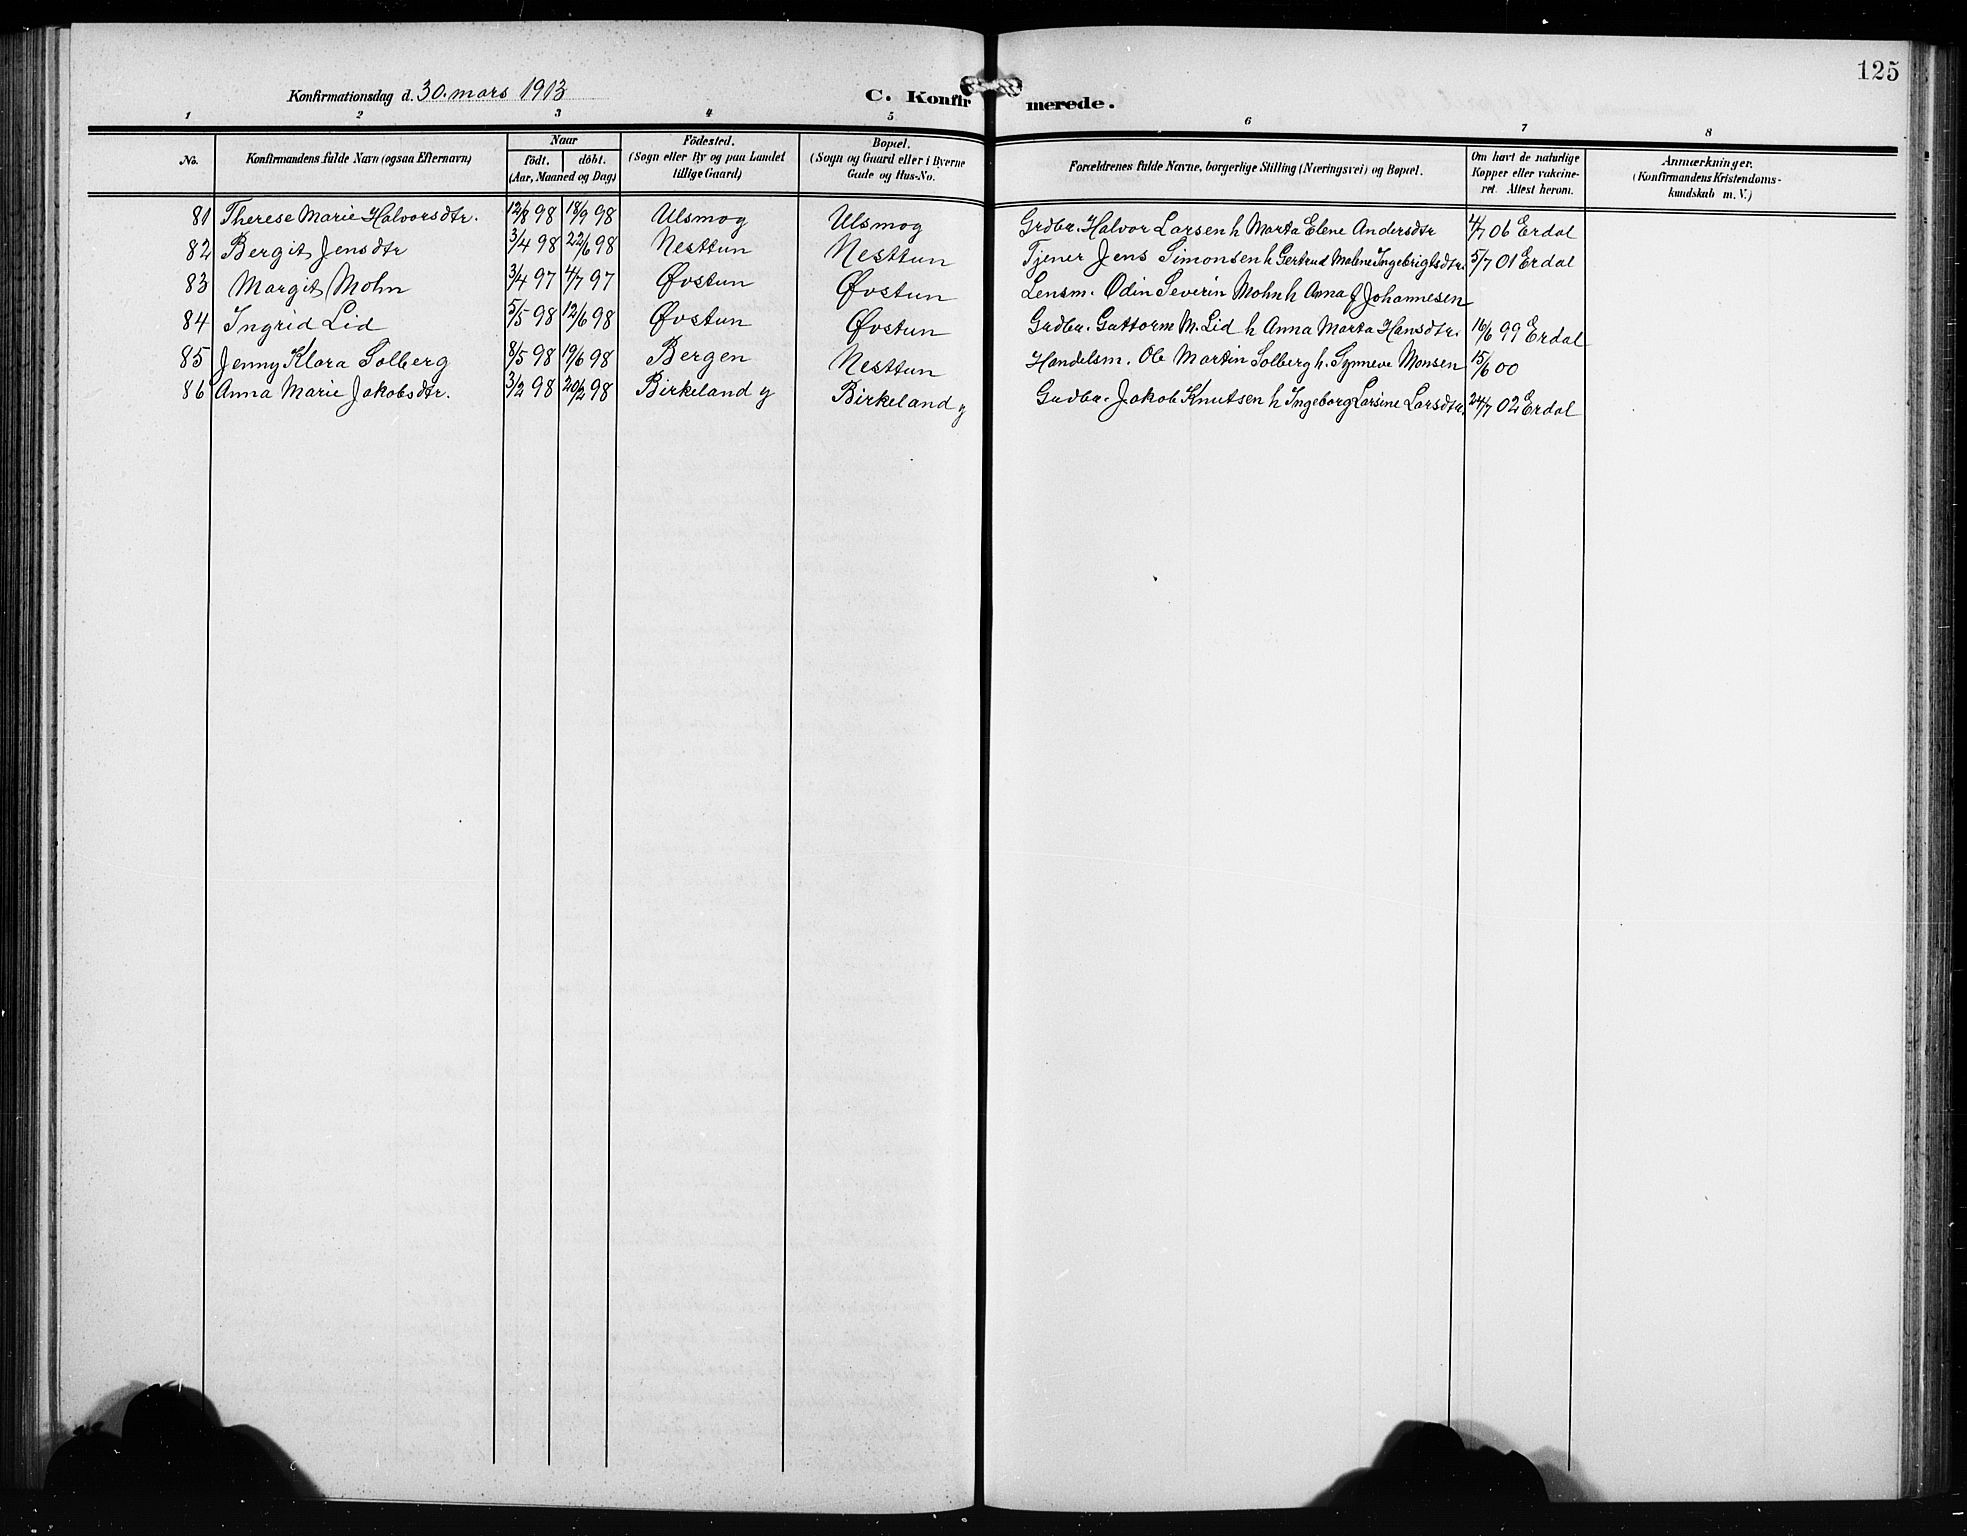 125
Konfirmationsdag d. 30. mars 1913 C. Konfirmerede.
1 2 3 4 5 6 7 8
No. Konfirmandens fulde Navn (ogsaa Efternavn) Naar födt. döbt. (Aar, Maaned og Dag) Födested. (Sogn eller By og paa Landet tillige Gaard) Bopæl. (Sogn og Gaard eller i Byerne Gade og Hus-No. Forældrenes fulde Navne, borgerlige Stilling (Næringsvei) og Bopæl. Om havt de naturlige Kopper eller vakcineret. Attest herom. Anmærkninger. (Konfirmandens Kristendomskundskab m. V.)
81 Therese Marie Halvorsdtr. 12/8 98 18/9 98 Ulsmog Ulsmog Grdbr. Halvor Larsen h Marta Elene Andersdtr 4/7 06 Erdal
82 Bergit Jensdtr 3/4 98 22/6 98 Nesttun Nesttun Tjener Jens Simonsen h Gertrud Malene Ingebrigtsdtr. 5/7 01 Erdal
83 Margit Mohn 3/4 97 4/7 97 Øvstun Øvstun Lensm. Odin Severin Mohn h Anna f Johannesen
84 Ingrid Lid 5/5 98 12/6 98 Øvstun Øvstun Grdbr. Guttorm M. Lid h Anna Marta Hansdtr. 16/6 99 Erdal
85 Jenny Klara Solberg 8/5 98 19/6 98 Bergen Nesttun Handelsm. Ole Martin Solberg h. Synneve Monsen 15/6 00
86 Anna Marie Jakobsdtr. 3/2 98 20/2 98 Birkeland y Birkeland y Grdbr. Jakob Knutsen h Ingeborg Larsine Larsdtr. 24/7 02 Erdal